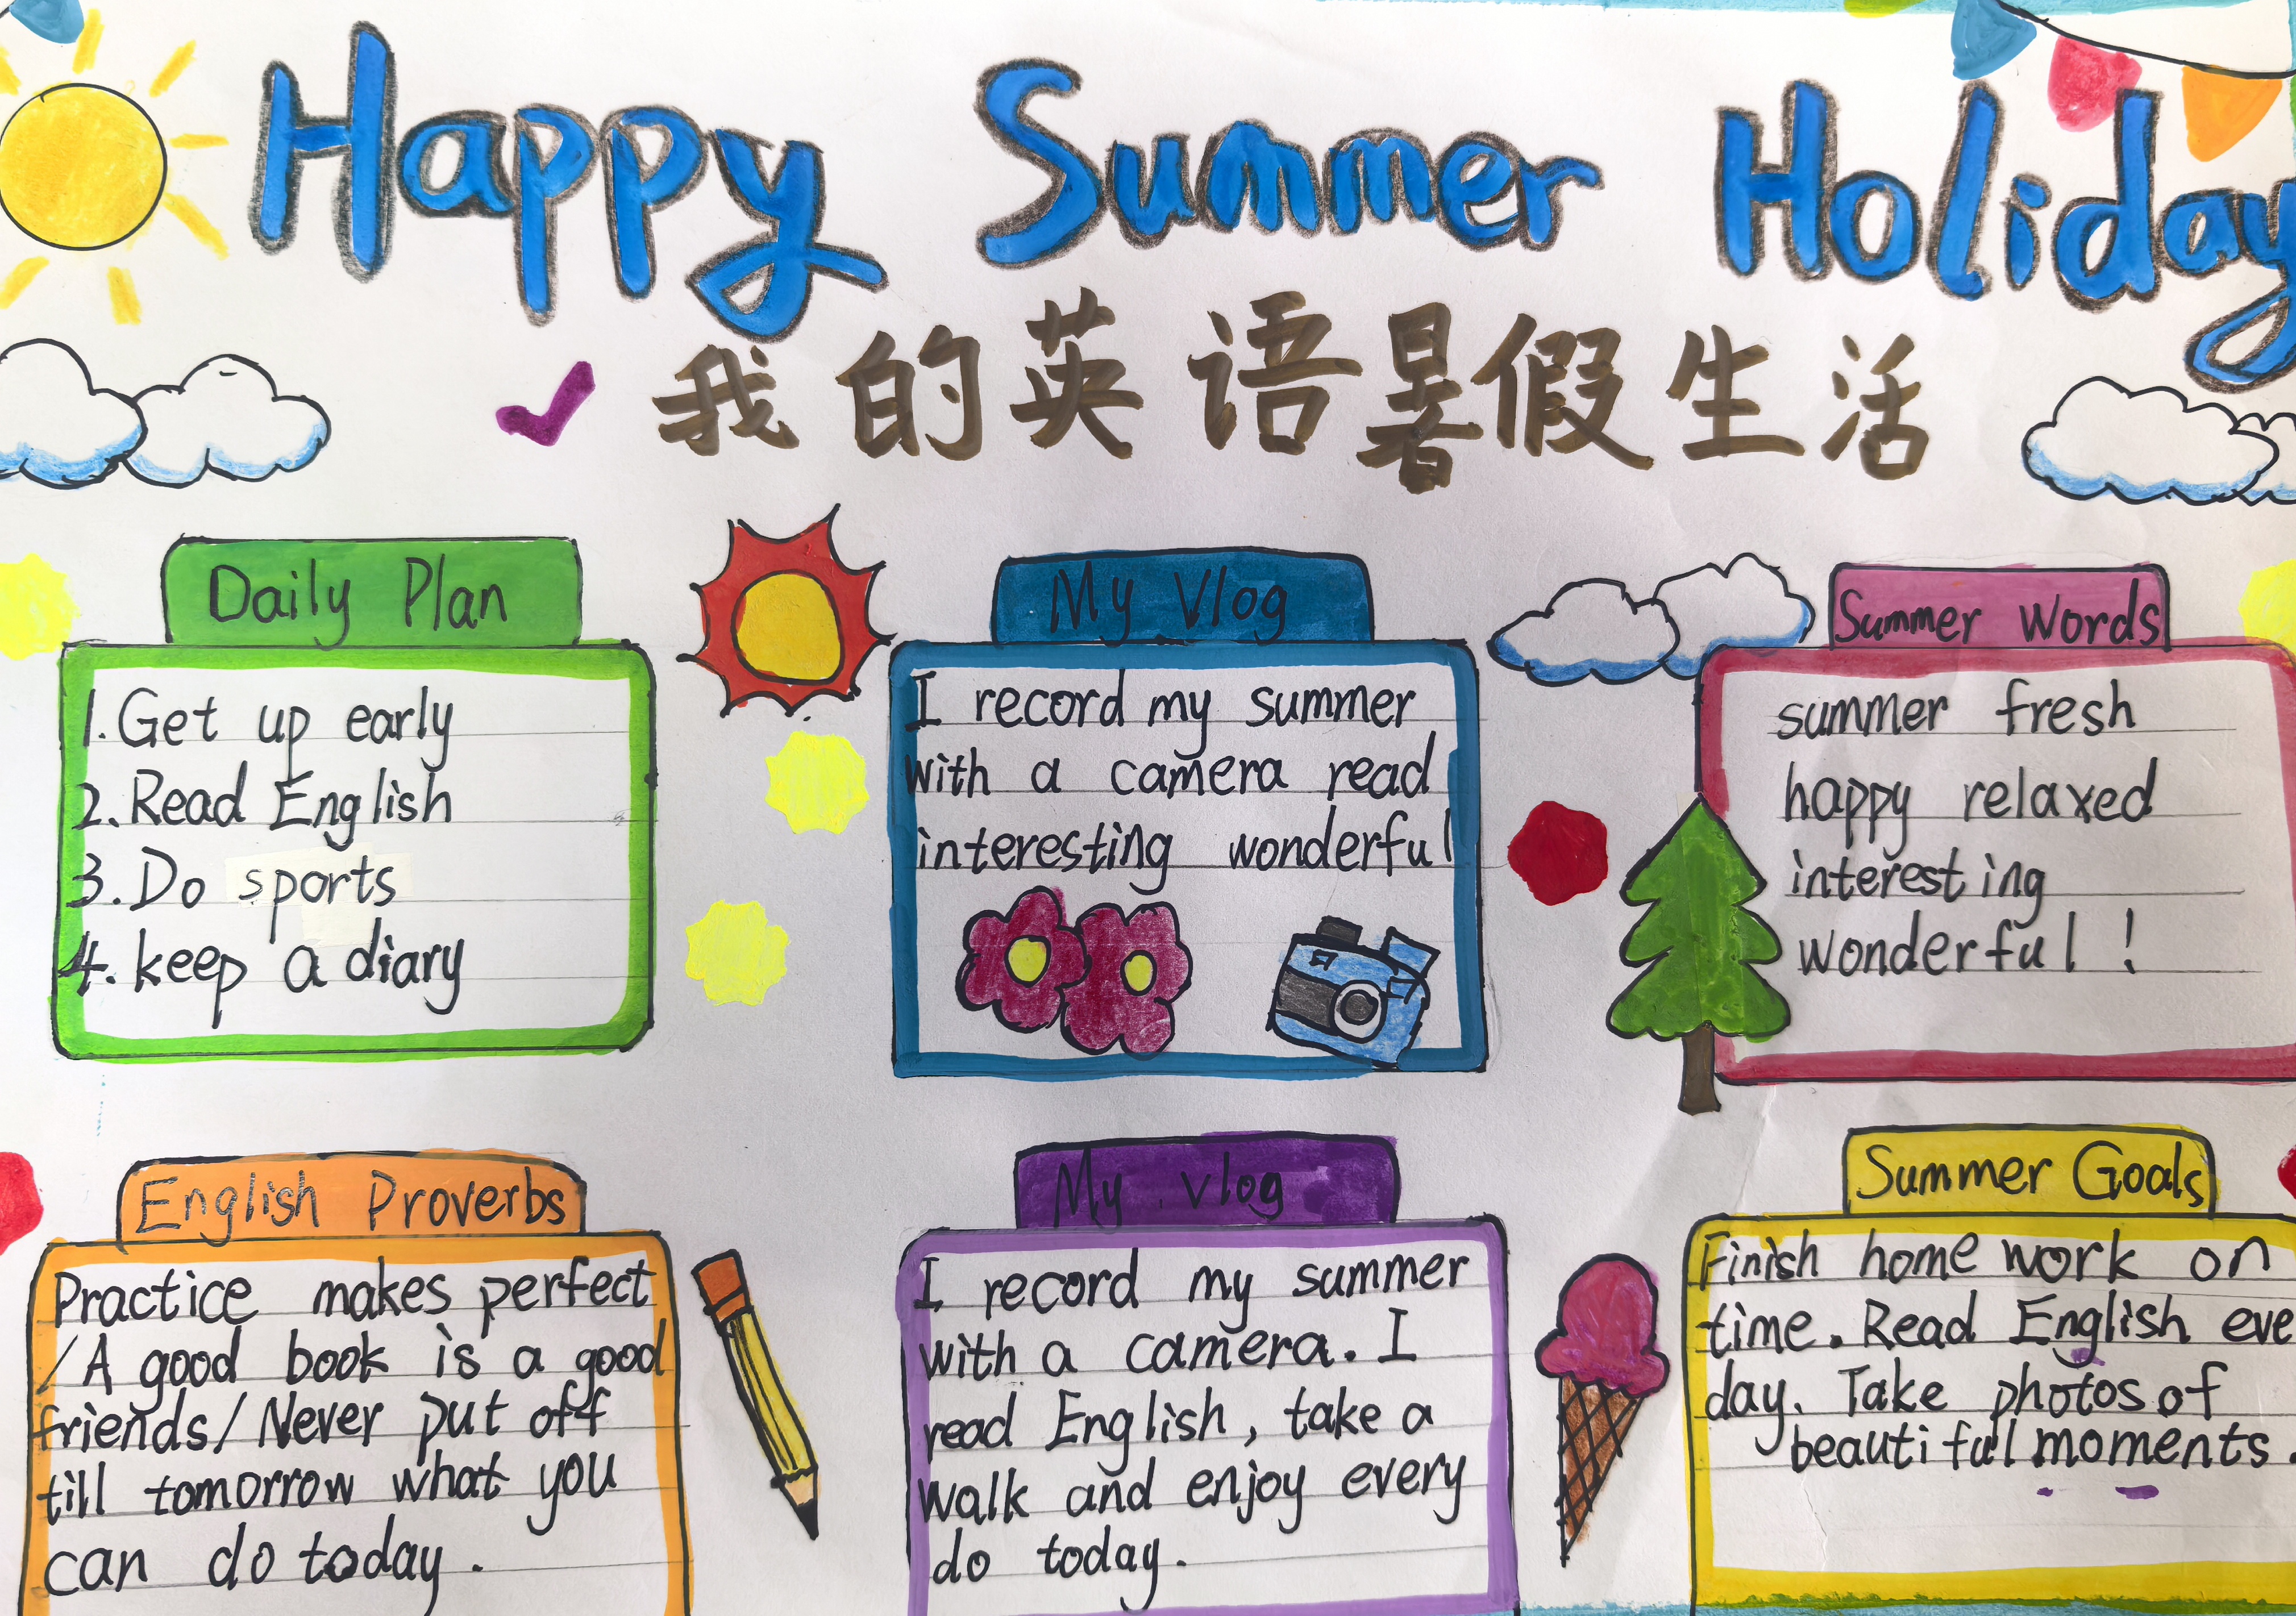 Happy Summer Holiday
我的英语暑假生活
Daily Plan
1. Get up early
2. Read English
3. Do sports
4. keep a diary
My Vlog
I record my summer
with a camera read
interesting wonderful
Summer Words
summer fresh
happy relaxed
interesting
wonderful !
English Proverbs
Practice makes perfect
/A good book is a good
friends/Never put off
till tomorrow what you
can do today.
My vlog
I record my summer
with a camera. I
read English, take a
walk and enjoy every
do today.
Summer Goals
Finish home work on
time. Read English eve
day. Take photos of
beautiful moments.